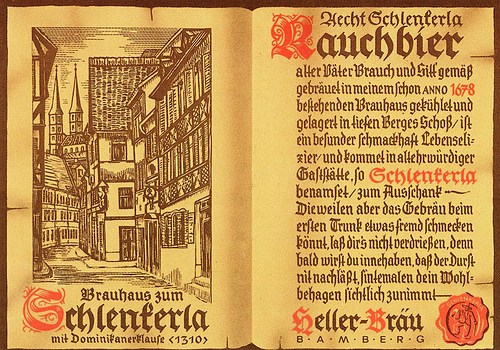 Brauhaus zum
Schlenkerla
mit Dominikanerklause <1310>
Aecht Schlenkerla
Rauchbier
alter Väter Brauch und Sitt gemäß
gebräuet in meinem schon ANNO 1678
bestehenden Brauhaus gekühlet und
gelagert in tiefen Berges Schoß/ist
ein besunder schmackhaft Lebenseli-
xier/und kommet in altehrwürdiger
Gaststätte, so Schlenkerla
benamset/zum Ausschank—
Dieweilen aber das Gebräu beim
ersten Trunk etwas fremd schmecken
könnt, laß dir's nicht verdrießen, denn
bald wirst du innehaben, daß der Durst
nit nachläßt, sintemalen dein Wohl-
behagen sichtlich zunimmt—
Heller-Bräu
B·A·M·B·E·R·G